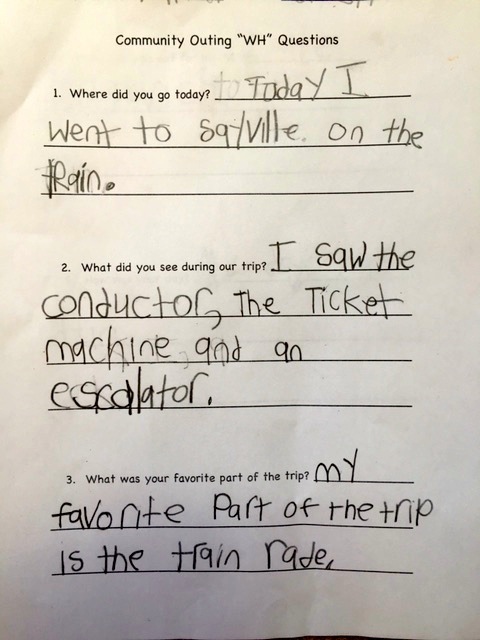 Community Outing "WH" Questions
1. Where did you go today? to Today I
went to Saylville. on the
tRain.
2. What did you see during our trip? I saw the
conductor, The Ticket
machine, and an
escalator.
3. What was your favorite part of the trip? my
favorite Part of the trip
is the train rade.